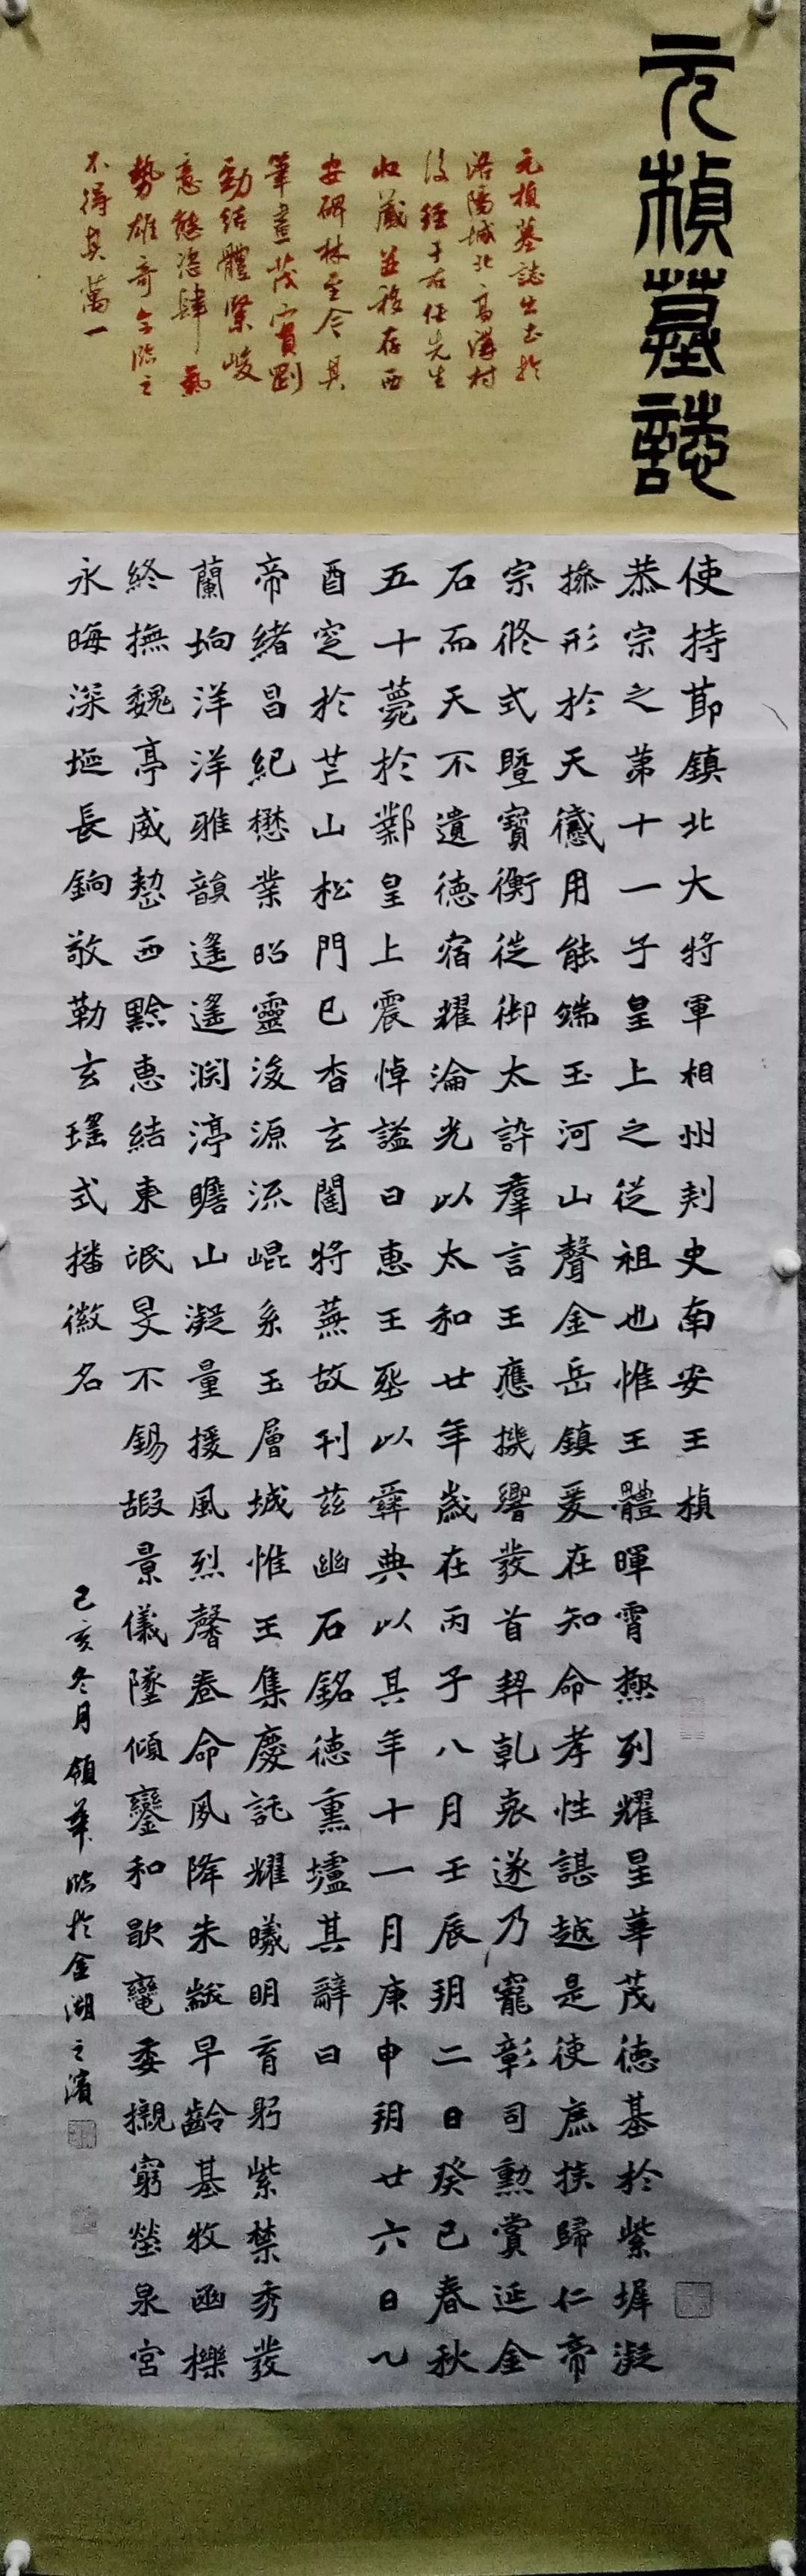 元楨墓誌
元楨墓誌出土於
洛陽城北高溝村
後經于右任先生
收藏並移存西
安碑林至今其
筆畫茂實剛
勁結體緊峻
意態恣肆氣
勢雄奇今臨之
不得其萬一
使持節鎮北大將軍相州刾史南安王楨
恭宗之第十一子皇上之從祖也惟王體暉霄極列耀星華茂德基於紫墀凝
操形於天感用能端玉河山聲金岳鎮爰在知命孝性諶越是使庶族歸仁帝
宗攸式暨寶衡徙御太訊羣言王應機響發首契乾衷遂乃寵彰司勳賞延金
石而天不遺德宿耀淪光以太和廿年歲在丙子八月壬辰朔二日癸巳春秋
五十薨於鄴皇上震悼謚曰惠王葬以彝典以其年十一月庚申朔廿六日乙
酉窆於芒山松門已杳玄闥將蕪故刊茲幽石銘德熏壚其辭曰
帝緒昌紀懋業昭靈浚源流崐系玉層城惟王集慶託耀曦明育躬紫禁秀發
蘭坰洋洋雅韻遙遙淵渟瞻山凝量援風烈馨卷命夙降朱黻早齡基牧函櫟
終撫魏亭威懾西黔惠結東氓旻不錫嘏景儀墜傾鑾和歇鞏委櫬窮塋泉宮
永晦深埏長鐍敬勒玄瑤式播徽名
己亥冬月領華臨於金湖之濱